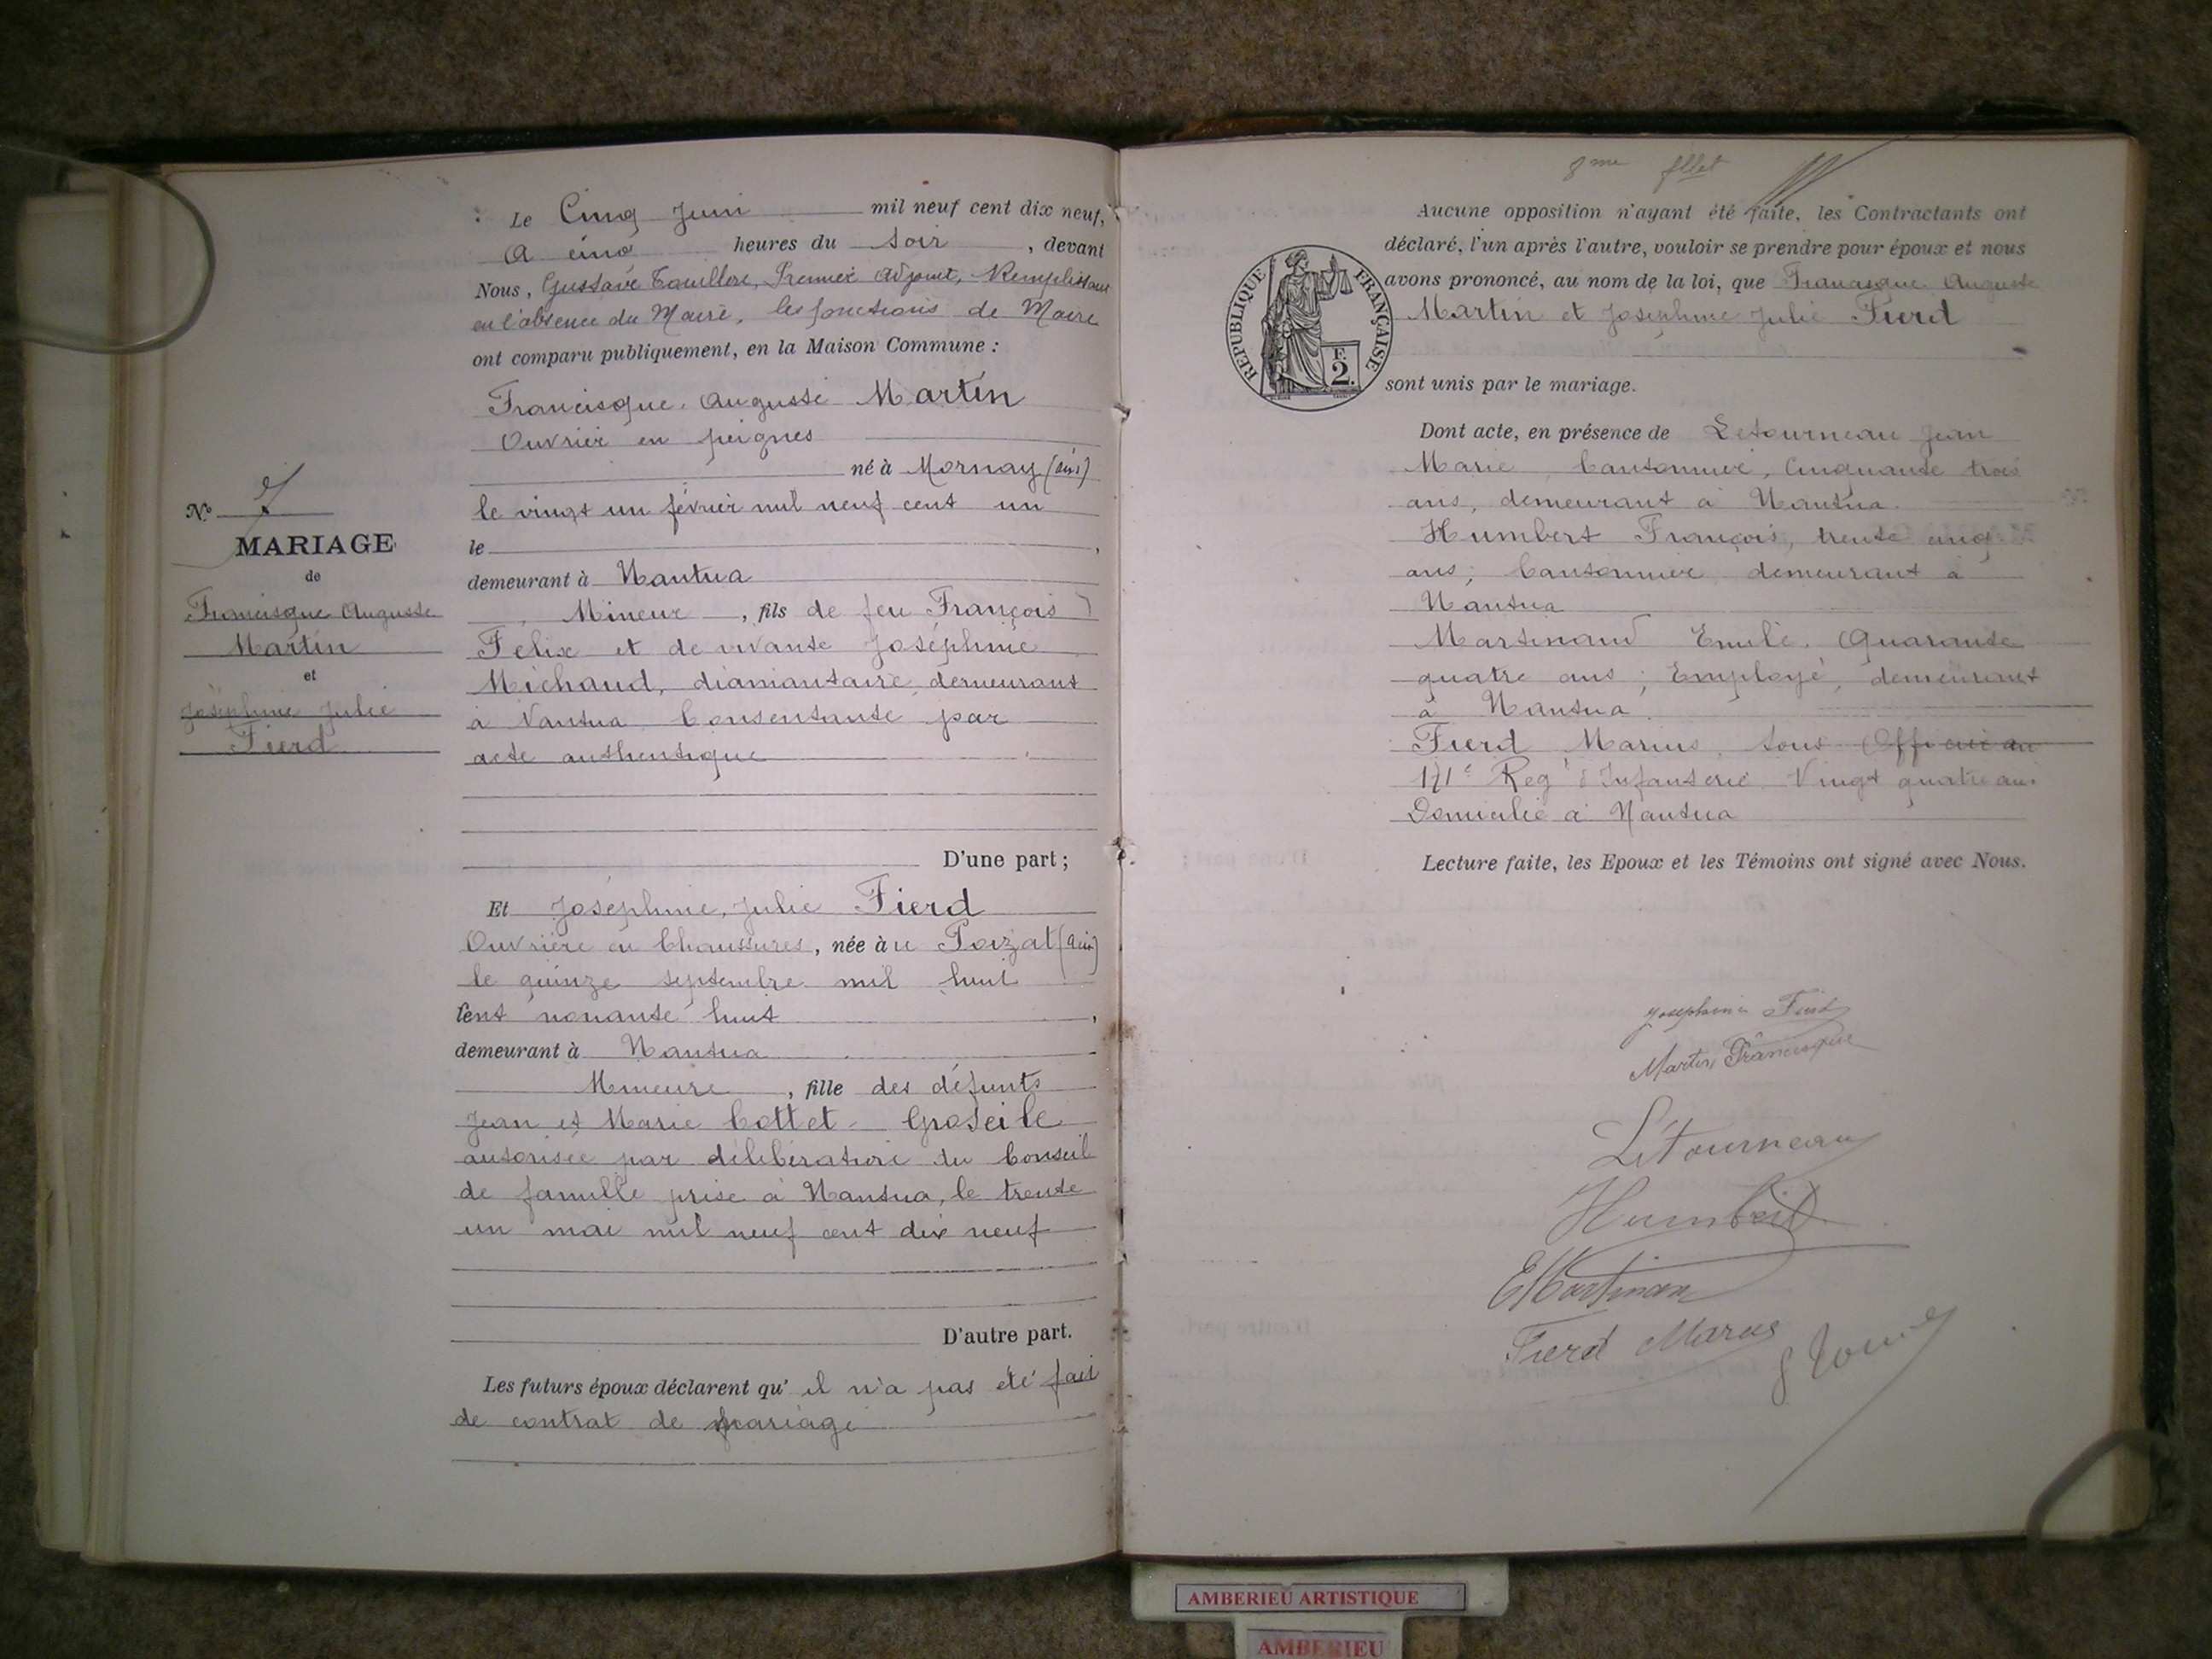 Le Cinq Juin mil neuf cent dix neuf,
A cinq heures du soir, devant
Nous, Gustave Premier Adjoint, Remplissant
en l'absence du Maire, les fonctions de Maire
ont comparu publiquement, en la Maison Commune :
Francisque, Auguste Martin
Ouvrier en peignes
né à Mornay (Ain)
le vingt un février mil neuf cent un
le
demeurant à Nantua
Mineur, fils de feu François
Felix et de vivante Joséphine
Michaud, diamantaire, demeurant
à Nantua Consentante par
acte authentique
D'une part ;
Nº 7
MARIAGE
de
Francisque Auguste
Martin
et
Joséphine Julie
Fierd
Et Joséphine, Julie Fierd
Ouvrière en Chaussures, née à u Poizat (Ain)
le quinze septembre mil huit
cent nonante huit
demeurant à Nantua
Mineure, fille des défunts
Jean et Marie Cottet - 
autorisée par délibération du Conseil
de famille prise à Nantua, le trente
un mai mil neuf cent dix neuf
D'autre part.
Les futurs époux déclarent qu'il n'a pas été fait
de contrat de mariage
8me fllet
Aucune opposition n'ayant été faite, les Contractants ont
déclaré, l'un après l'autre, vouloir se prendre pour époux et nous
avons prononcé, au nom de la loi, que Francisque Auguste
Martin et Joséphine Julie Fierd
sont unis par le mariage.
REPUBLIQUE FRANÇAISE
F.
2.
Dont acte, en présence de Letourneau Jean
Marie Cantonnier, Cinquante trois
ans, demeurant à Nantua
Humbert François, trente cinq
ans, Cantonnier demeurant à
Nantua
Martinand Emile, Quarante
quatre ans ; Employé, demeurant
à Nantua
Fierd Marius, sous Officier au
171e Reg d'Infanterie Vingt quatre ans
Domicilié à Nantua
Lecture faite, les Epoux et les Témoins ont signé avec Nous.
Josephine Fierd
Martin Francisque
Létourneau
Humbert
E Martinan
Fierd Marus
AMBERIEU ARTISTIQUE
AMBERIEU